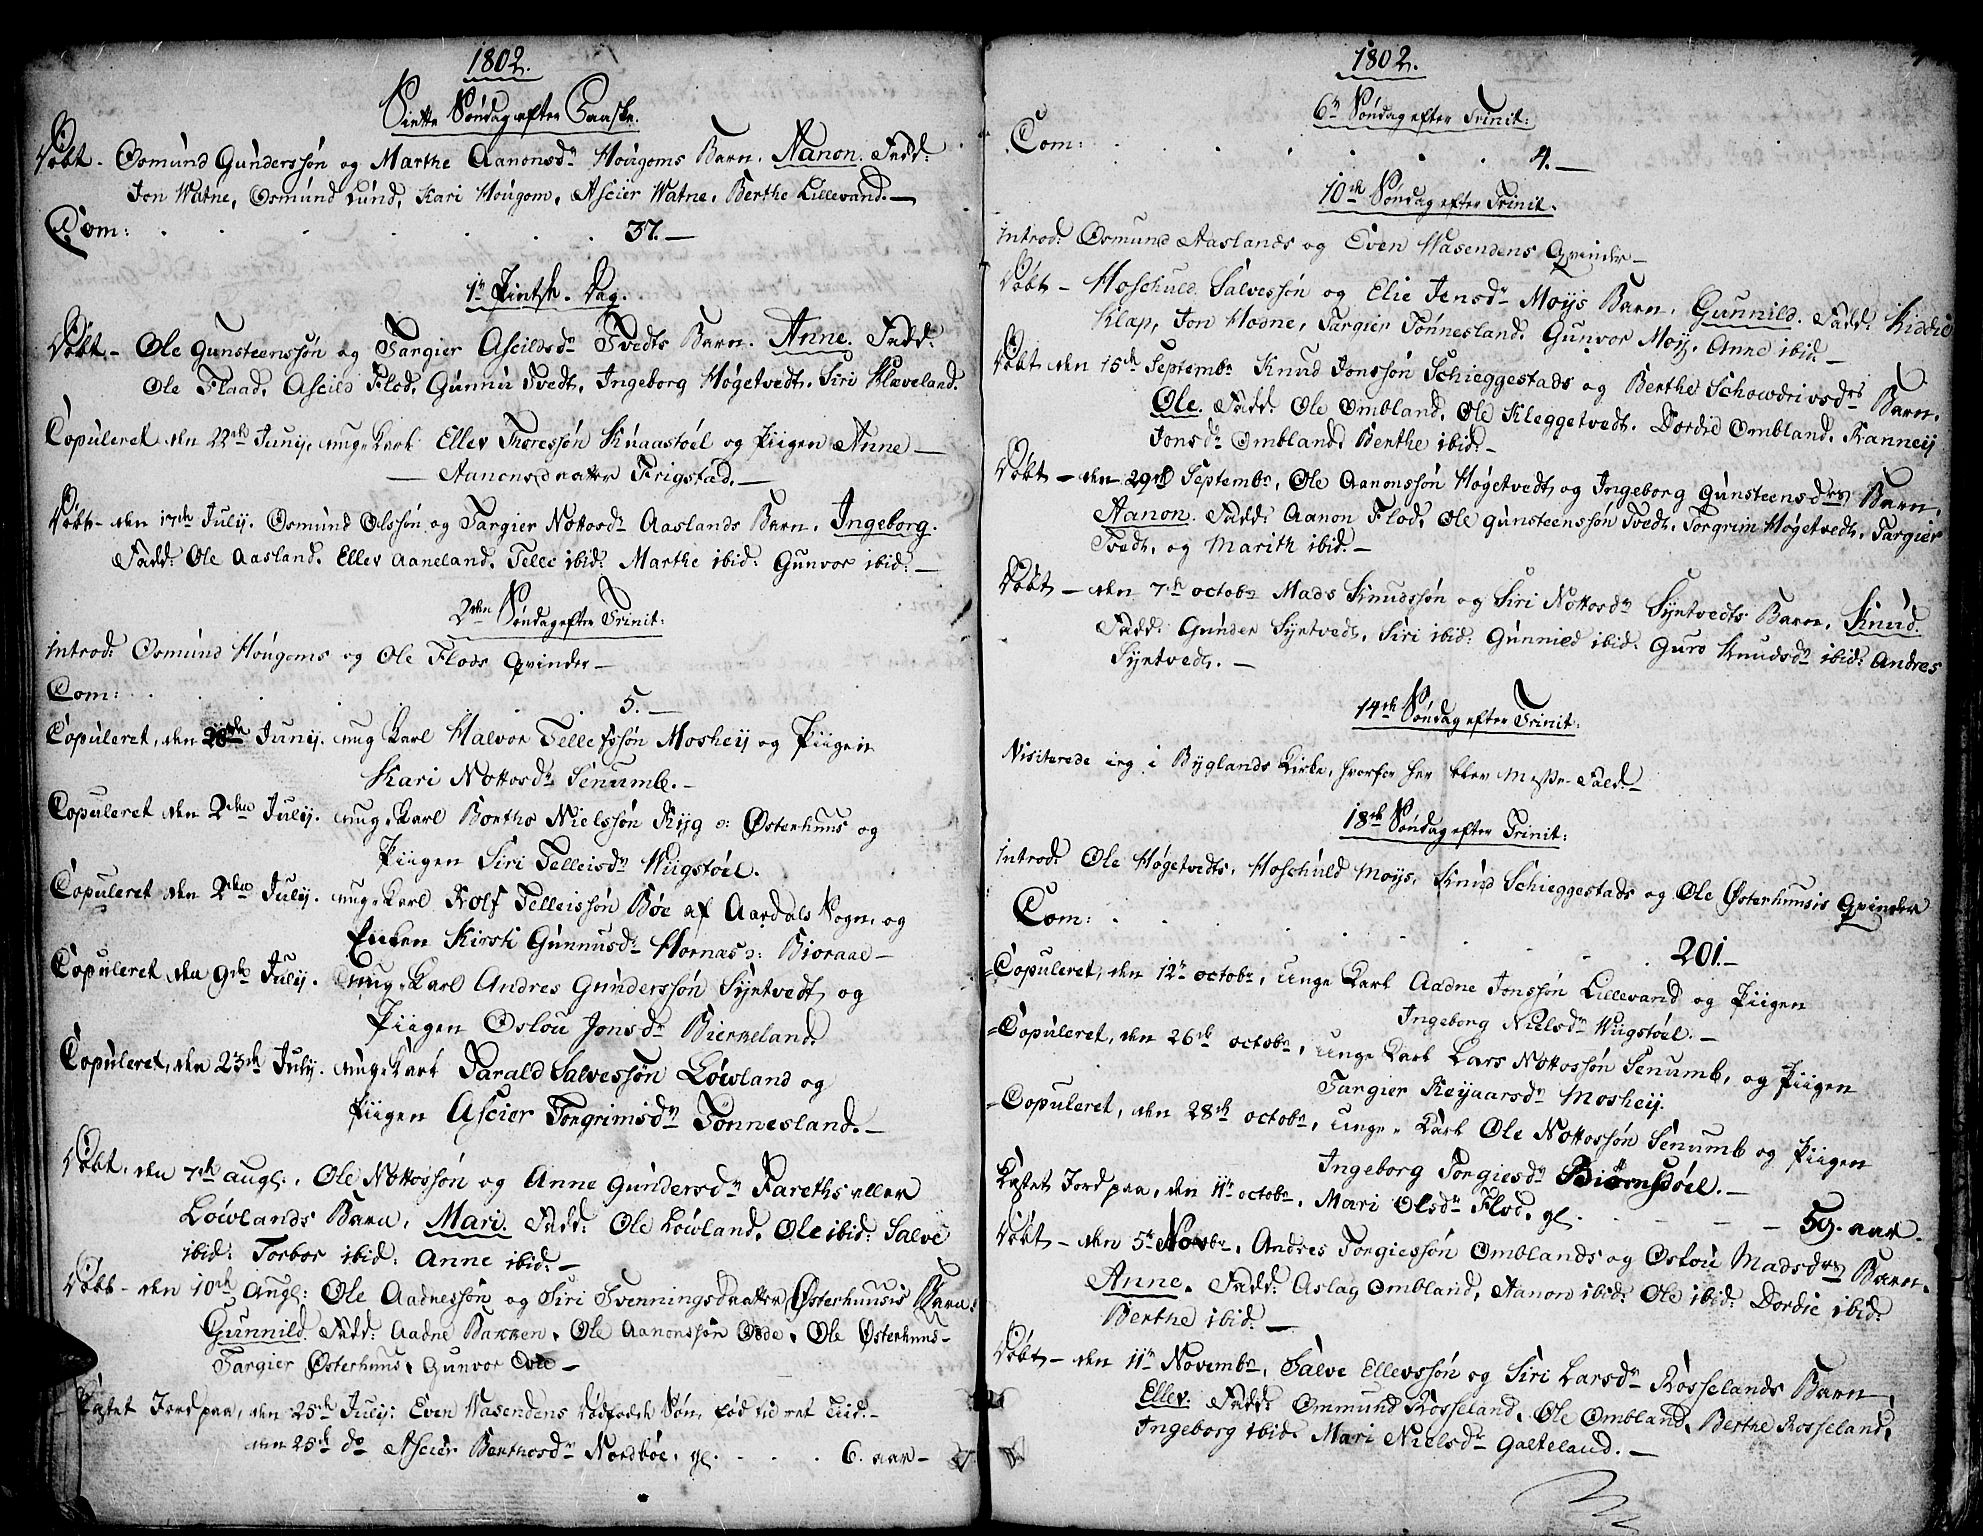 1802.
Siette Søndag efter Paaske.
Døbt - Osmund Gundersøn og Marthe Aanonsdr Hougoms Barn. Aanon. Fadd:
Jon Watne, Osmund Lund, Kari Hougom, Ascier Watne, Berthe Lillevand.
Com: . . . . . . 37.
1n Pintsk. Dag.
Døbt - Ole Gunsteenssøn og Targier Ascildsdr Tvedts Barn. Anne. Fadd:
Ole Flaad, Ascild Flod, Gunnu Tvedt, Ingeborg Høgetvedt. Siri Klæveland.
Copuleret den 22de Junij, unge Karl Ellev Thoressøn Knaastøel og Piigen Anne
Aanonsdaatter Frigstad.
Døbt - den 17de July. Osmund Olssøn og Targier Nottosdr Aaslands Barn. Ingeborg.
Fadd: Ole Aasland. Ellev Aaneland. Tellec ibid: Marthe ibid: Gunvor ibid:
2den Søndag efter Trinit:
Introd: Osmund Hougoms og Ole Flods Qvinder
Com: . . . . 5.
Copuleret, den 28de Junij. unge Karl Halvor Tellefssøn Mosheij og Piigen
Kari Nottosdr Senumb.
Copuleret den 2den Julij. unge Karl Bortho Nielssøn Ryg o: Østerhuus og
Piigen Siri Telleisdr Wiigstøel.
Copuleret den 2den Julij. unge Karl Rolf Telleissøn Bøe af Aardals Sogn, og
Enken Kirsti Gunnusdr Hornas o: Bioraae
Copuleret den 9de Julij. unge Karl Andres Gunderssøn Syrtvedt og
Piigen Oslou Jonsdr Bierkeland.
Copuleret, den 23de Julij. unge Karl Tarald Salvessøn Løwland og
Piigen Ascier Torgrimsdr Tønnesland.
Døbt, den 7de Augs., Ole Nottossøn og Anne Gundersdr Fareths eller
Løwlands Barn, Mari. Fadd: Ole Løwland. Ole ibid: Salve
ibid: Torbor ibid: Anne ibid:
Døbt - den 10de Augs: Ole Aadnessøn og Siri Svenningsdaatter Østerhuusis Barn:
Gunnild. Fadd: Aadne Bakken. Ole Aanonssøn Ose. Ole Østerhuus
Targier Østerhuus, Gunvor Ose
Kastet Jord paa, den 25de Julij: Even Wasendens dødfødde Søn, fød til ret Tiid.
den 25de do Ascier Berthosdr Nordbøe, gl. . . . 6. aar
1802.
6te Søndag efter Trinit:
Com: . . . . . . 4.
10de Søndag efter Trinit.
Introd: Osmund Aaslands og Even Wasendens Qvinder
Døbt - Hoschuld Salvessøn og Elie Jensdr Moijs Barn. Gunnild. Fadd: Kiddie
Klap, Jon Hodne, Targier Tønnesland. Gunvor Moij. Anne ibid:
Døbt den 15de Septembr Knud Jonssøn Schieggestads og Berthe Schowdrivsdrs Barn.
Ole. Fadd: Ole Ombland, Ole Kleggetvedt. Dordie Ombland. Ranneij
Jonsdr Ombland. Berthe ibid:
Døbt - den 29de Septembr, Ole Aanonssøn Høgetvedt og Ingeborg Gunsteensdrs Barn.
Aanon. Fadd: Aanon Flod, Ole Gunsteenssøn Tvedt, Torgrim Høgetvedt, Targier
Tvedt, og Marith ibid:
Døbt - den 7de Octobr Mads Knudssøn og Siri Nottosdr Syrtvedts Barn. Knud.
Fadd: Gunder Syrtvedt, Siri ibid: Gunnild ibid: Guro Knudsdr ibid: Andres
Syrtvedt.
14de Søndag efter Trinit:
Visiterede ieg i Byglands Kirke, hvorfor her blev Messe-Fald.
18de Søndag efter Trinit:
Introd: Ole Høgetvedts, Hoschuld Moijs, Knud Schieggestads og Ole Østerhuusis Qvinder
Com: . . . . . 201.
Copuleret, den 12te Octobr, unge Karl Aadne Jonssøn Lillevand og Piigen
Ingeborg Nielsdr Wiigstøel.
Copuleret, den 26de Octobr, unge Karl Lars Nottossøn Senumb, og Piigen
Targier Reijaarsdr Moshej.
Copuleret, den 28de Octobr, unge Karl Ole Nottossøn Senumb og Piigen
Ingeborg Torgiesdr Biørnsdøel.
Kastet Jord paa, den 11te Octobr, Mari Olsdr Flod. gl. - - - 59. aar.
Døbt - den 5te Novbr. Andres Torgiessøn Omblands og Oslou Madsdrs Barn.
Anne. Fadd: Aslag Ombland, Aanon ibid: Ole ibid: Dordie ibid:
Berthe ibid:
Døbt - den 11te Novembr, Salve Ellevssøn og Siri Larsdr Rosselands Barn,
Ellev: Fadd: Ommund Rosseland, Ole Ombland, Berthe Rosseland,
Ingeborg ibid: Mari Nielsdr Galteland.